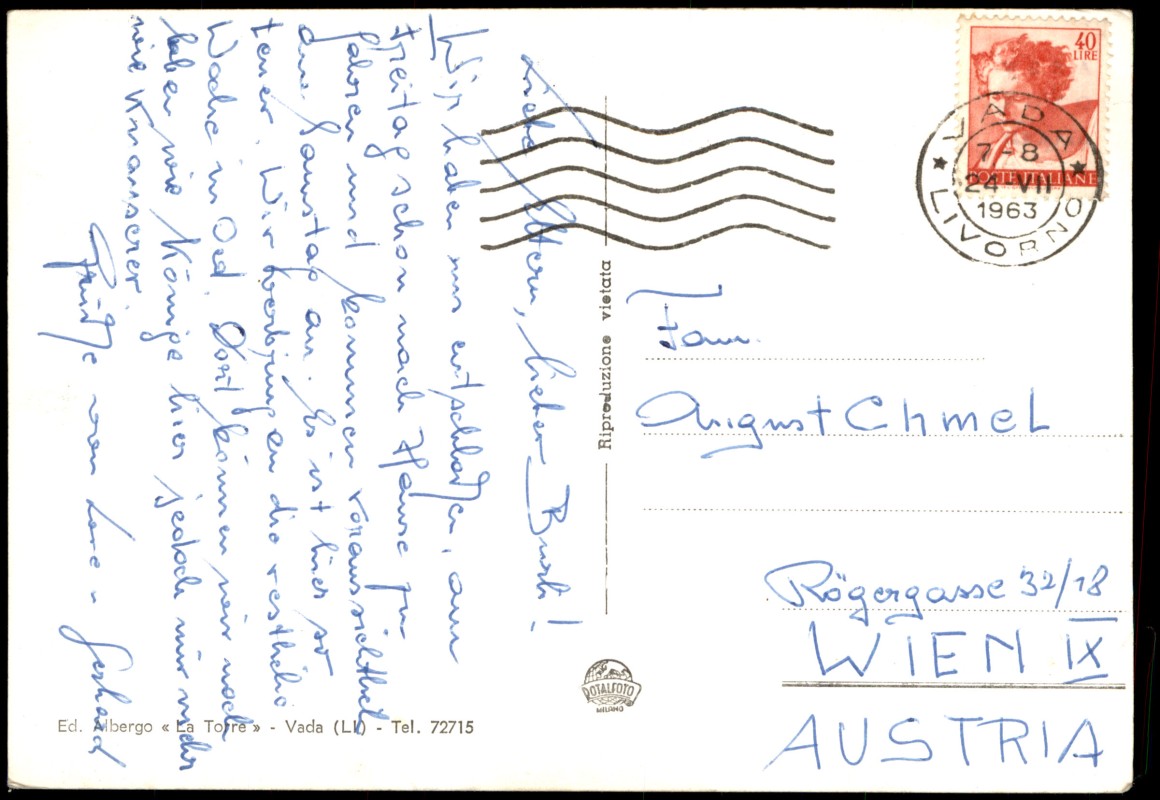 Liebe Eltern, lieber Burli!
Wir haben uns entschloßen, am
Freitag schon nach Hause zu
fahren und kommen voraussichtlich
am Samstag an. Es ist hier so
teuer. Wir verbringen die restliche
Woche in Oed. Dort können wir noch
leben wie Könige hier jedoch nur mehr
wie Knauserer.
Grüße von Lore u. Gerhard
Ed. Albergo « La Torre » - Vada (LI) - Tel. 72715
Riproduzione vietata
ROTALFOTO
MILANO
40
LIRE
POSTE ITALIANE
VADA
7-8
24 VII
1963
LIVORNO
Fam.
August Chmel
Rögergasse 32/18
WIEN IX
AUSTRIA